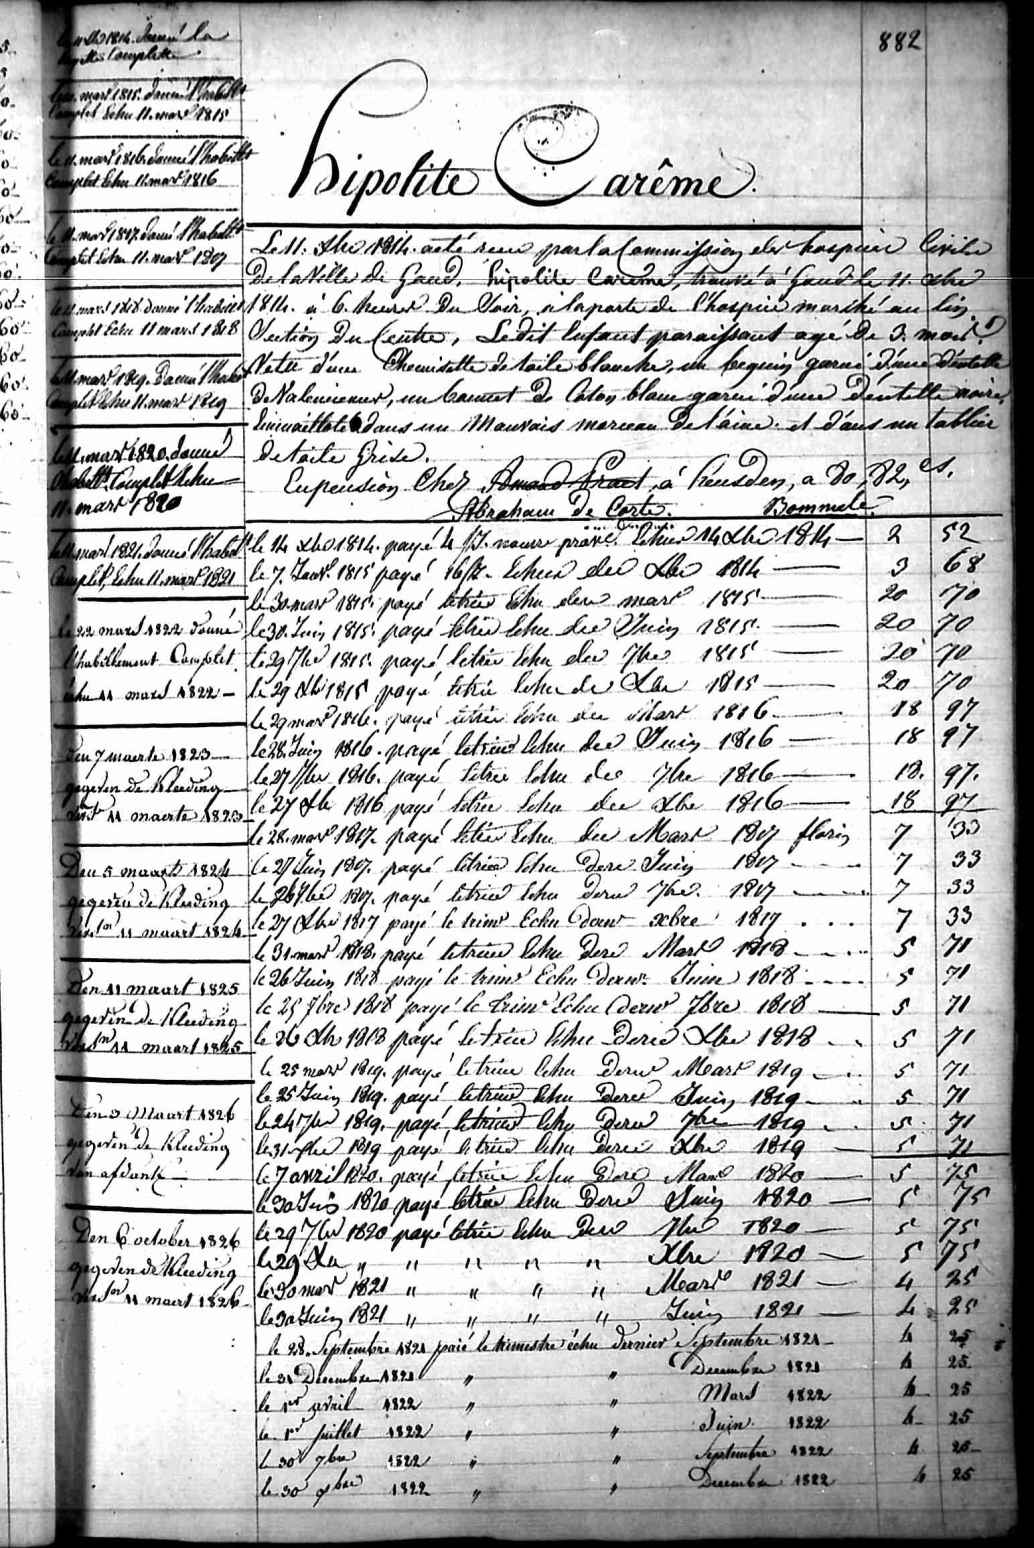 882
hipolite Carême.
le 11 Xbre 1814. donné la
Complette
le 11. mars 1815. donné l'habillt
Complet Echu 11. mars 1815
le 11. mars 1816. donné l'habillt
Complet Echu 11. mars 1816
le 11. mars 1817. donné l'habillt
Complet Echu 11. mars 1817
le 11. mars 1818 donné l'habillt
Complet Echu 11 mars 1818
le 11. mars 1819. Donné l'habillt
Complet Echu 11. mars 1819
le 11. mars 1820. donné
l'habillt. Complet Echu
11. mars 1820
le 11. mars 1821. donné l'habillt
Complet, Echu 11. mars 1821
le 22 mars 1822 donné
l'habillement Complet
échu 11 mars 1822 –
Den 7 maerte 1823 –
gegeven de Kleeding
11 maerte 1823
Den 5 maart 1824
gegeven de Kleeding
11 maart 1824
Den 11 maart 1825
gegeven de Kleeding
11 maart 1825
Den 3 Maart 1826
gegeven de Kleeding
Den 6 october 1826
gegeven de Kleeding
11 maert 1826
Le 11. Xbre 1814. a été reçu par la Commission des hospices Civils
De la Ville de Gand, hipolite Carême, trouvé à Gand le 11. Xbre
1814. à 6. heures Du Soir, à la porte de l'hospice marché au lin,
Section Du Centre, Ledit Enfant paraissant agé de 3. mois
Vetu d'une Chemisette de toile blanche, un beguin garni d'une dentelle
De Valencienne, un bonnet De Coton blanc garni d'une Dentelle noire,
Emmailloté dans un Mauvais morceau de laine et dans un tablier
de toile Grise.
En pension Chez Amand Praet, à heusden, a 80, 82, cs.
Abraham De Corte. Bommele
le 14 Xbre 1814. payé 4 nourr Echus 14 Xbre 1814 — 2 52
le 7. Janv. 1815 payé Echus de Xbre 1814 — 3 68
le 30 mars 1815. payé letrim Echu de mars 1815 — 20 70
le 30. Juin 1815. payé letrim Echu de Juin 1815. — 20 70
le 29 7bre 1815. payé letrim Echu de 7bre 1815 — 20 70
le 29 Xbre 1815 payé letrim Echu de Xbre 1815 — 20 70
le 29 mars 1816. payé letrim Echu de Mars 1816 — 18 97
le 28. Juin 1816. payé letrim Echu de Juin 1816 — 18 97
le 27 7bre 1816. payé letrim Echu de 7bre 1816 — 18. 97.
le 27 Xbre 1816 payé letrim Echu de Xbre 1816 — 18 97
le 28. mars 1817. payé letrim Echu de Mars 1817 florins 7 33
le 27 Juin 1817. payé letrim Echu Dern Juin 1817 — 7 33
le 26 7bre 1817. payé letrim Echu Dern 7bre. 1817 — 7 33
le 27 Xbre 1817 payé le trimr Echu Dernr xbre 1817 . . . 7 33
le 31 mars 1818. payé letrim Echu Dern Mars 1818 — 5 71
le 26 Juin 1818 payé le trimr Echu Dernr. Juin 1818 . . . . 5 71
le 25 7bre 1818 payé le trimr Echu Dernr 7bre 1818 — 5 71
le 26 Xbre 1818 payé letrim Echu Dern Xbre 1818 — 5 71
le 25 mars 1819. payé letrim Echu Dern Mars 1819 — 5 71
le 25 Juin 1819. payé letrim Echu Dern Juin 1819 — 5 71
le 24 7bre 1819. payé letrim Echu Dern 7bre 1819 — 5 71
le 31 Xbre 1819 payé letrim Echu Dern Xbre 1819 — 5 71
le 7 avril 1820. payé letrim Echu Dern Mars 1820 — 5 75
le 30 Juin 1820 payé letrim Echu Dern Juin 1820 — 5 75
le 29 7bre 1820 payé letrim Echu Dern 7bre 1820 — 5 75
le 29 Xbre " " " " " Xbre 1820 — 5 75
le 30 mars 1821 " " " " Mars 1821 — 4 25
le 30 Juin 1821 " " " " Juin 1821 — 4 25
le 28. Septembre 1821 paié le trimestre échu dernier Septembre 1821 – 4 25
le 31 Decembre 1821 " " Decembre 1821 4 25
le 1er avril 1822 " " Mars 1822 4 25
le 1r juillet 1822 " " Juin 1822 4 25
le 30 7bre 1822 " " Septembre 1822 4 25
le 30 1822 " " Decembre 1822 4 25